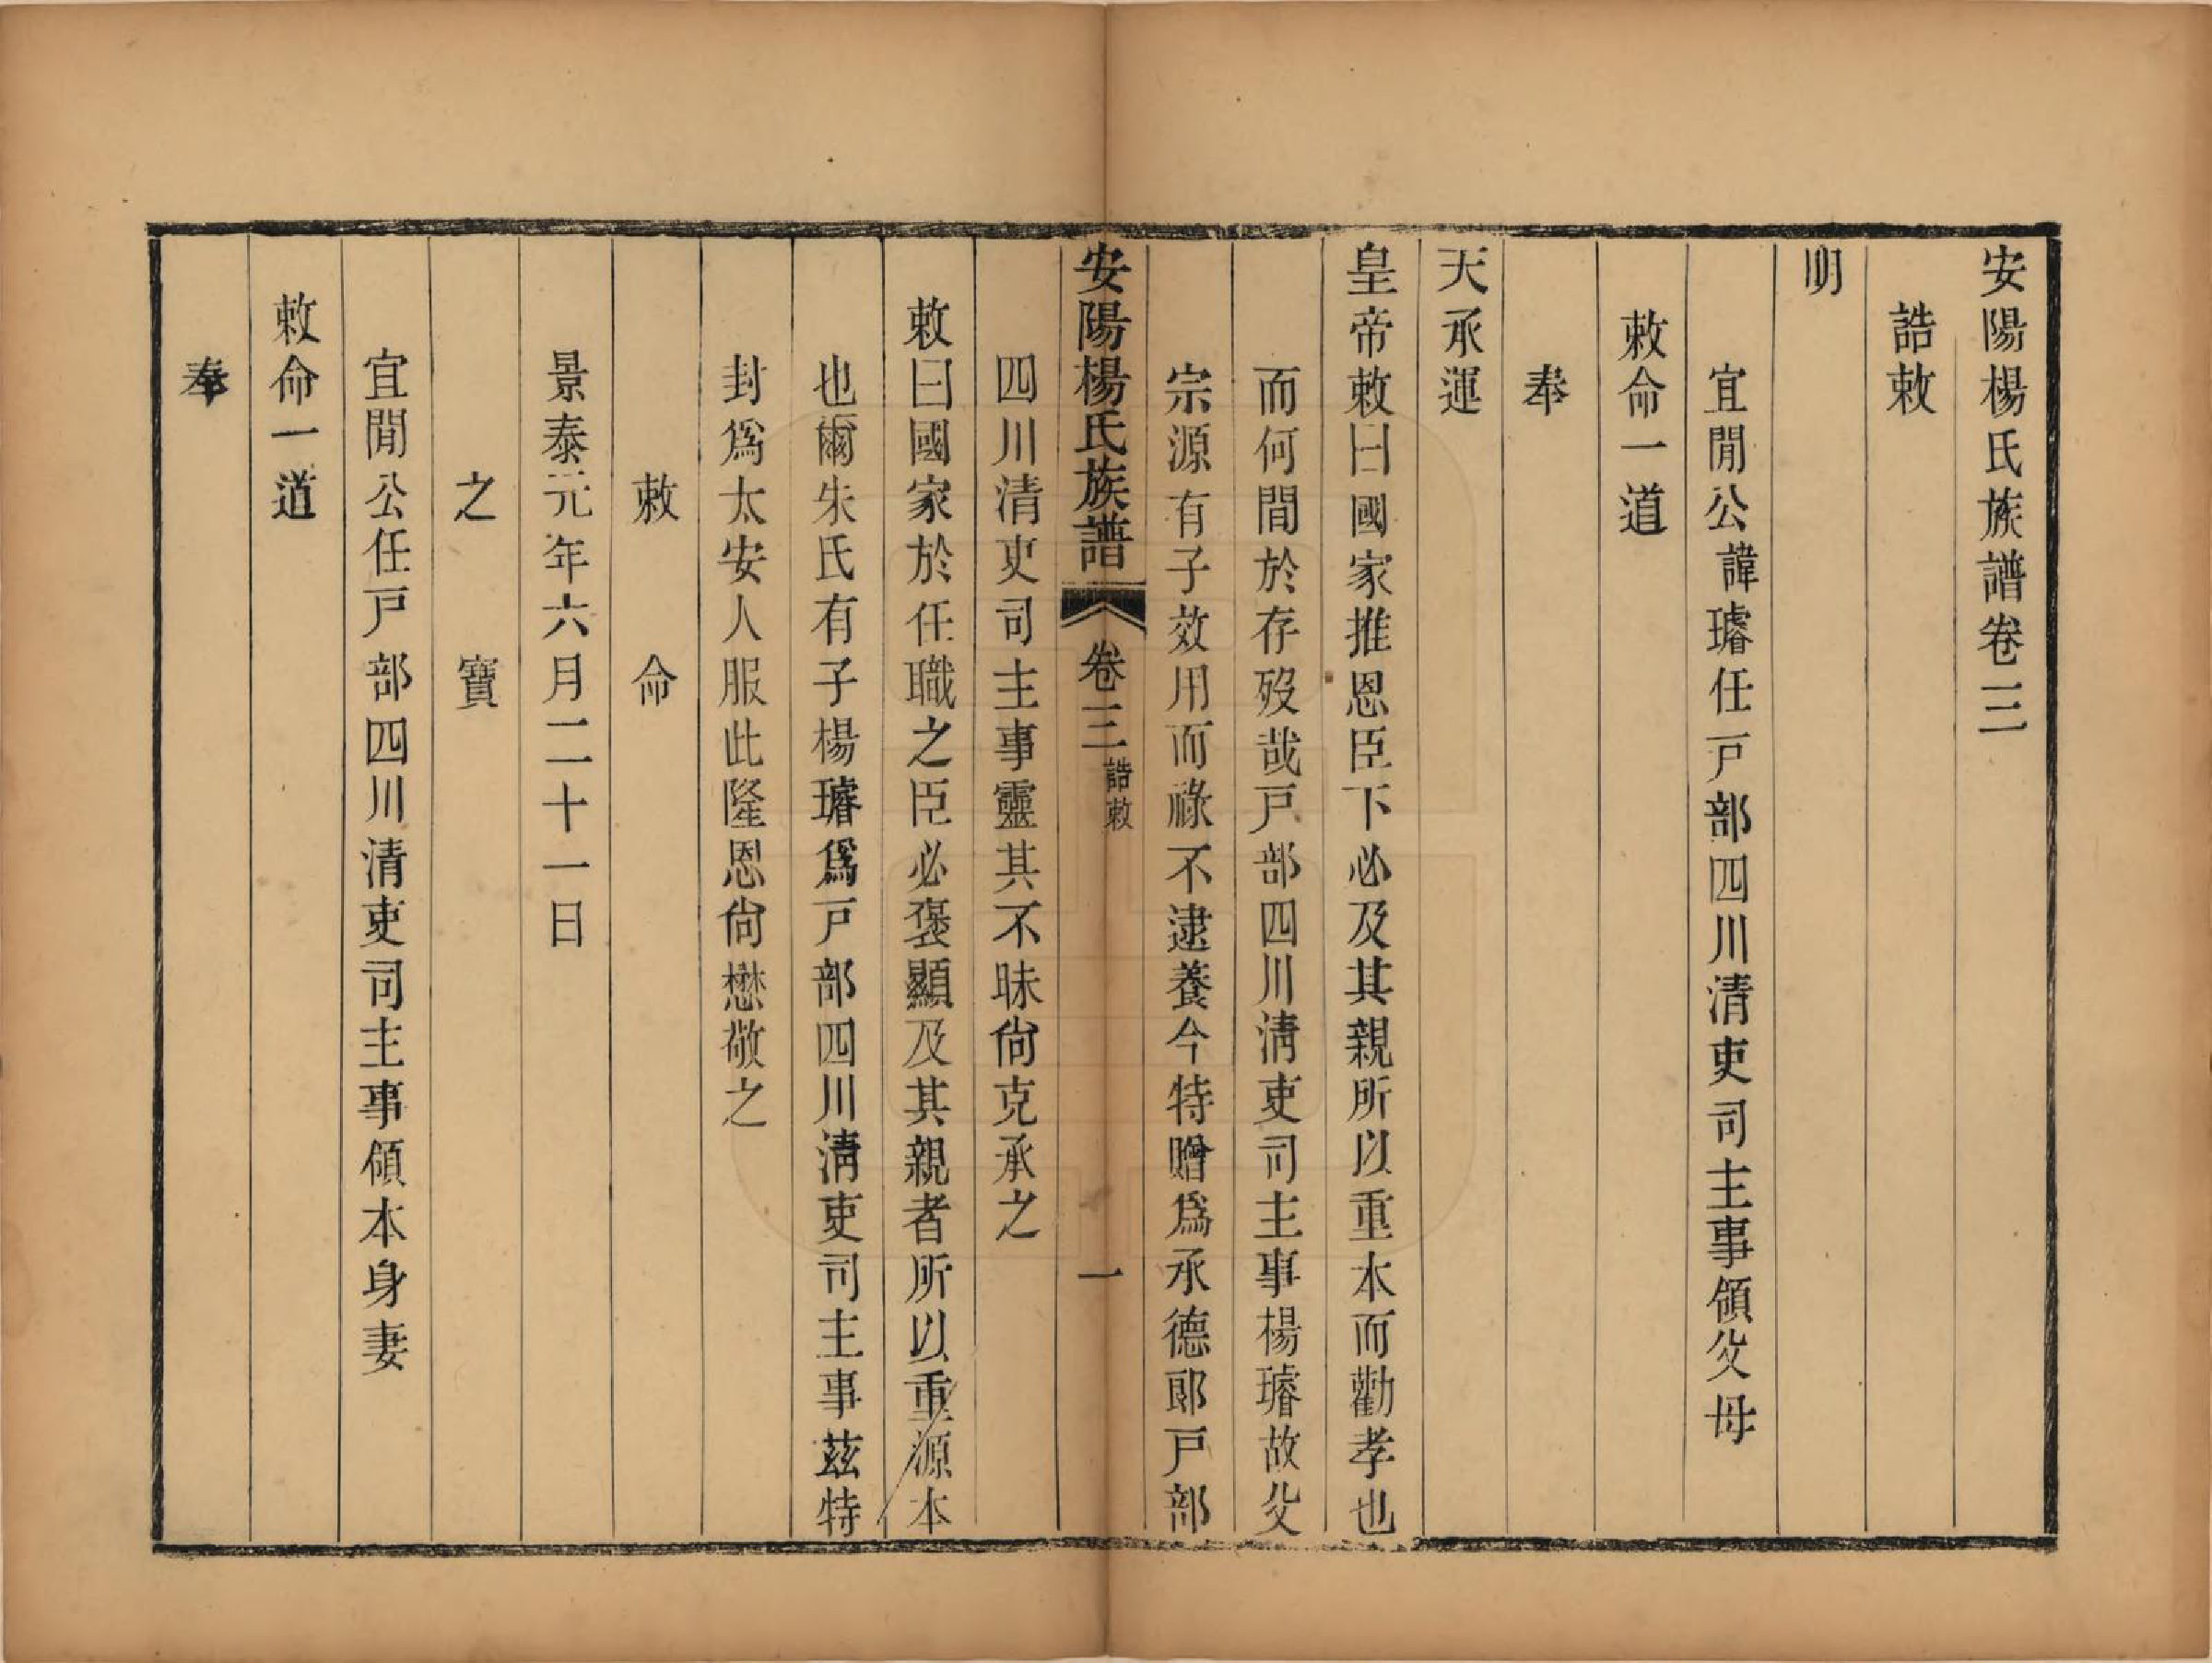 安陽楊氏族譜卷三
誥敕
明
宜閒公諱璿任戸部四川清吏司主事領父母
敕命一道
奉
天承運
皇帝敕曰國家推恩臣下必及其親所以重本而勸孝也
而何間於存歿哉戸部四川淸吏司主事楊璿故父
宗源有子效用而祿不逮養今特贈爲承德郞戸部
安陽楊氏族譜 卷三 誥敕 一
四川清吏司主事靈其不昧尙克承之
敕曰國家於任職之臣必褒顯及其親者所以重源本
也爾朱氏有子楊璿爲戸部四川淸吏司主事茲特
封爲太安人服此隆恩尙懋敬之
敕命
景泰元年六月二十一日
之寶
宜閒公任戸部四川清吏司主事領本身妻
敕命一道
奉